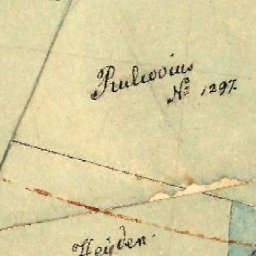 Pulcovius
No 1297.
Heyden.